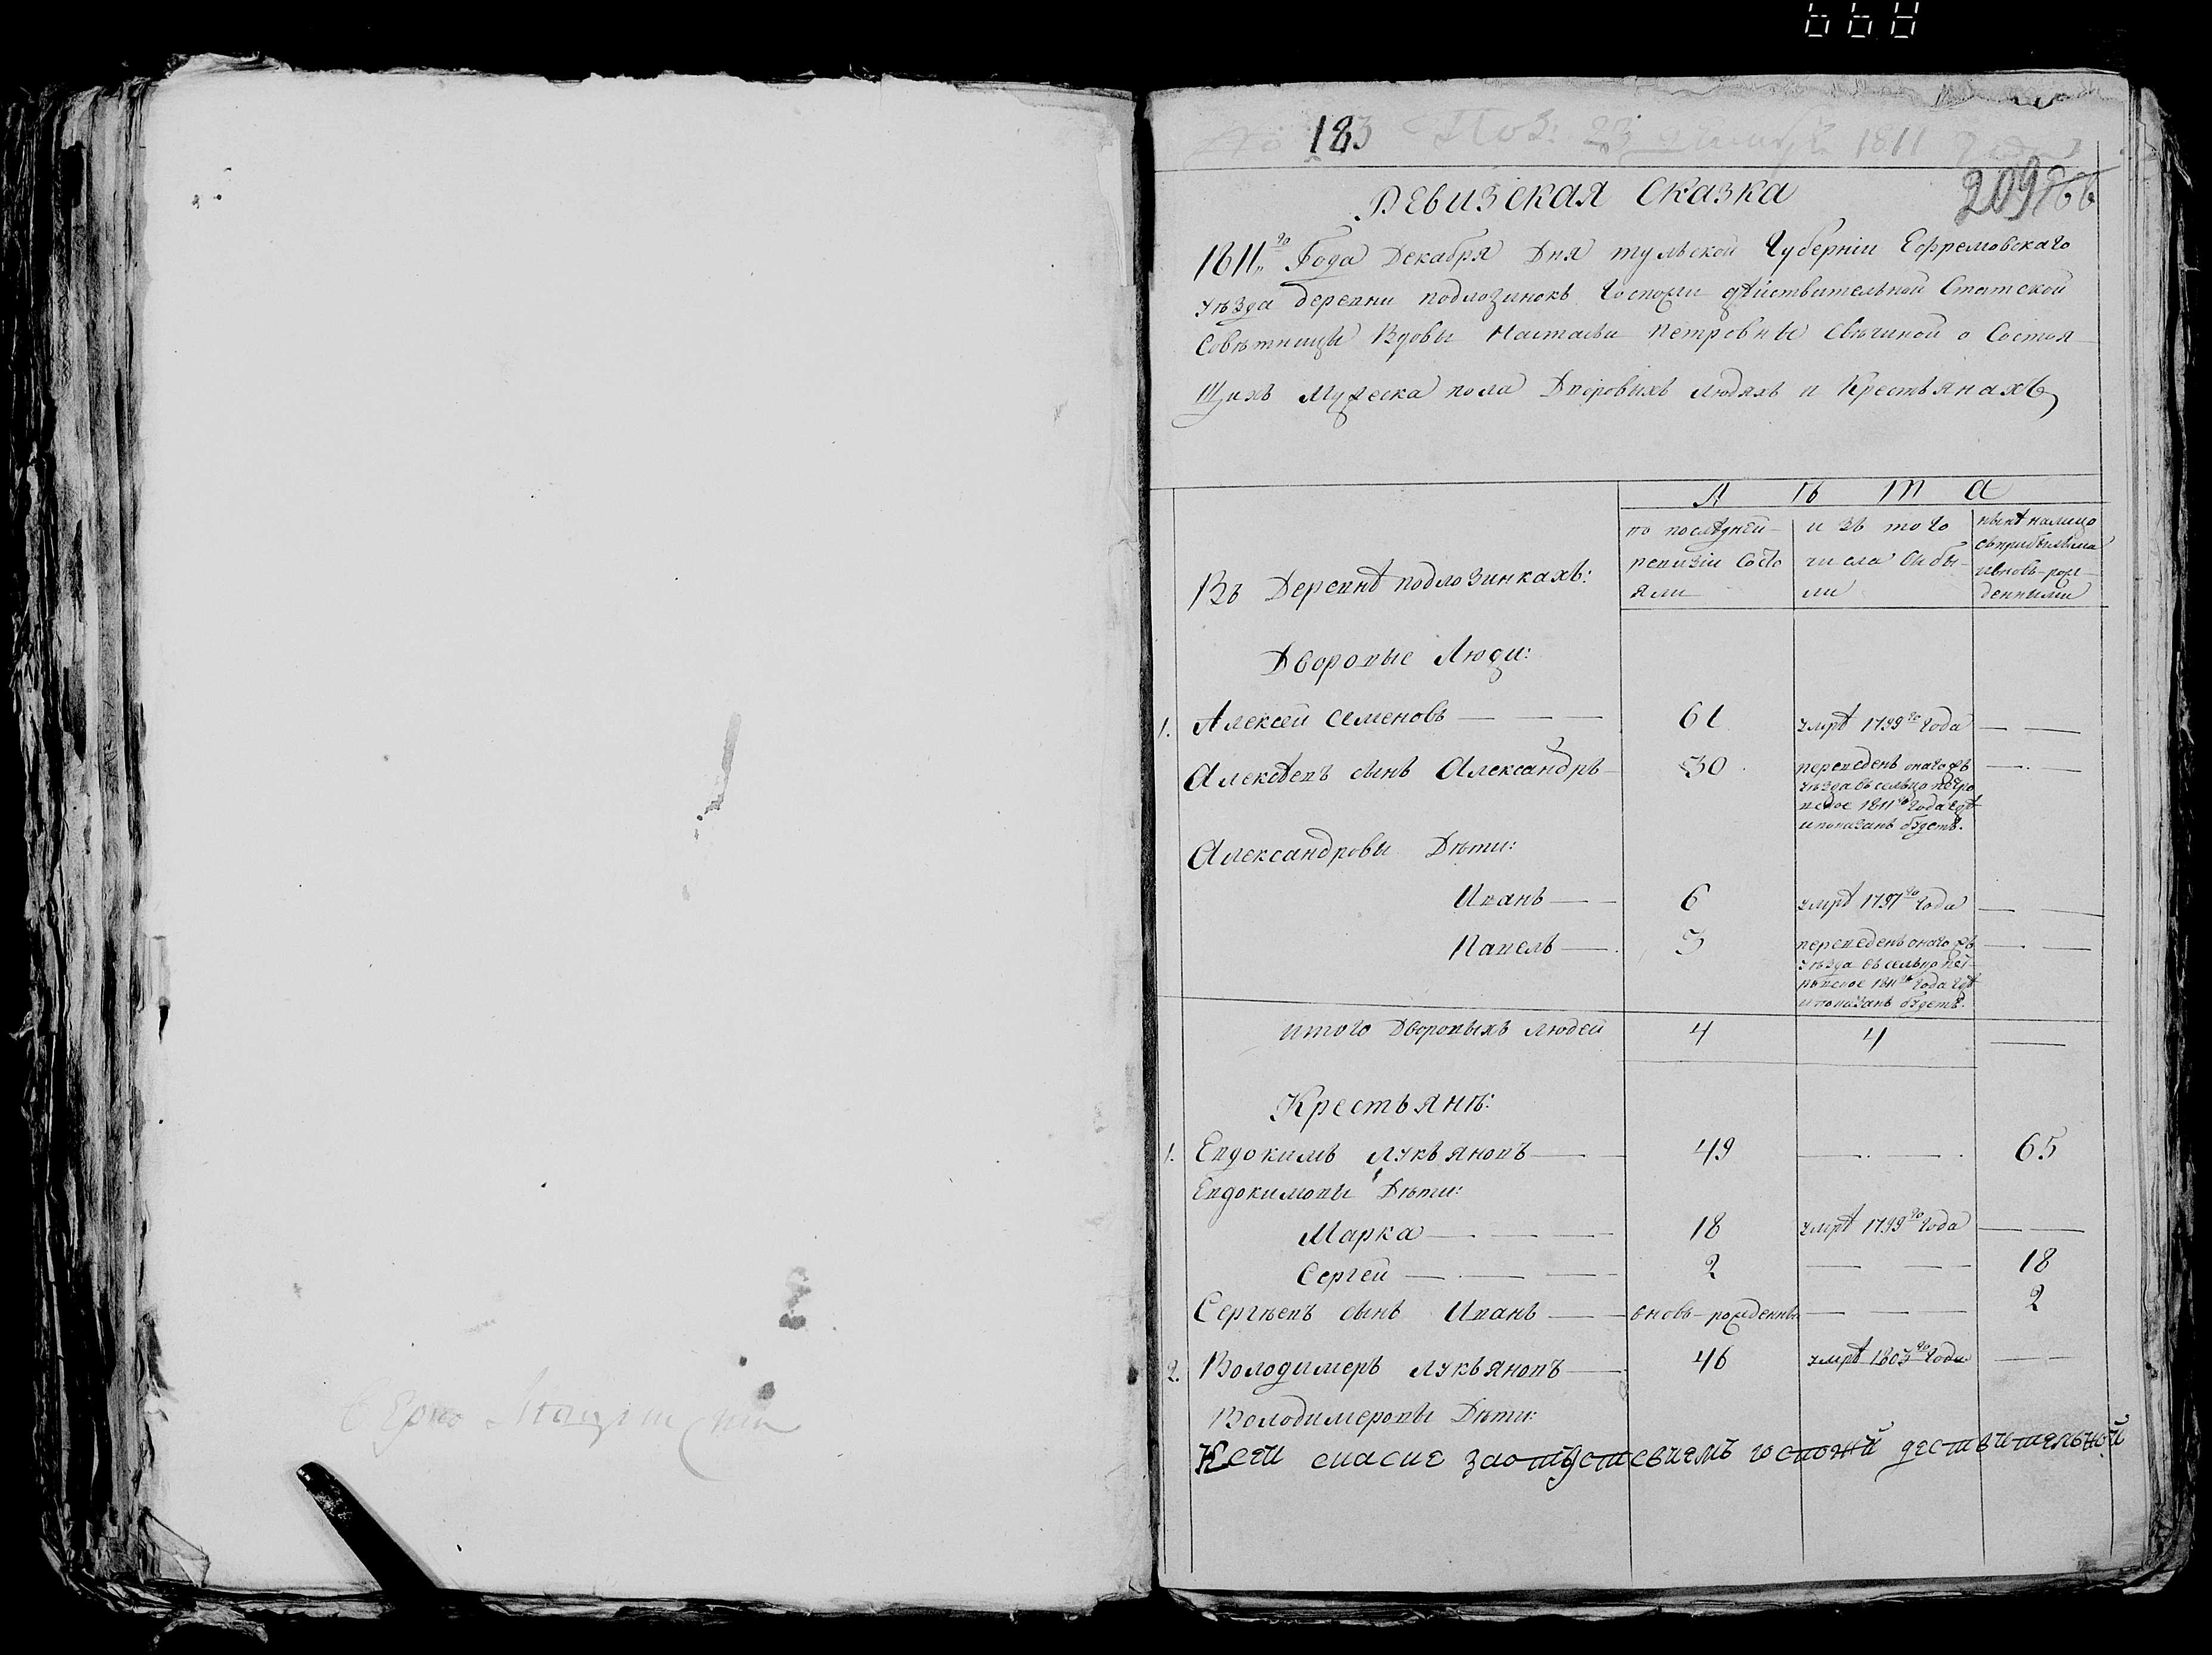 183 1811
209 866
Ревизская сказка
1811го Года Декабря Дня тульской Губерніи Ефремовскаго
уѣзда деревни подлозинокъ Госпожи дѣйствительной Статской
Совѣтницы Вдовы Натальи Петровны Свечиной о Состоя
щихъ Мужеска пола Дворовыхъ людяхъ и Крестьянахъ
Л ѣ т а
Въ Деревнѣ подлозинкахъ:
по послѣдней ревизіи Состояли
изъ того числа выбыли
нынѣ налицо съ прибылыми и вновь рожденными
Дворовые Люди:
1. Алексей Семеновъ 61 умрѣ 1799го Года
Алексѣевъ сынъ Александръ 30 переведенъ онагожъ
уѣзда въ сельцо петро
вское 1811го Года гдѣ
и показанъ будетъ.
Александровы Дѣти:
Иванъ 6 умрѣ 1797го Года
Павелъ 3 переведенъ онагожъ
уѣзда въ сельцо пет
ровское 1811го Года гдѣ
и показанъ будетъ.
итого Дворовыхъ людей 4 4
Крестьянѣ:
1. Евдокимъ Лукьяновъ 49 65
Евдокимовы Дѣти:
Марка 18 умрѣ 1799го Года
Сергей 2 18
Сергѣевъ сынъ Иванъ вновь рожденны 2
2. Володимеръ Лукьяновъ 46 умрѣ 1803го Года
Володимеровы Дѣти:
Ксеи скаске заотдуствиемъ госпожи дествительной